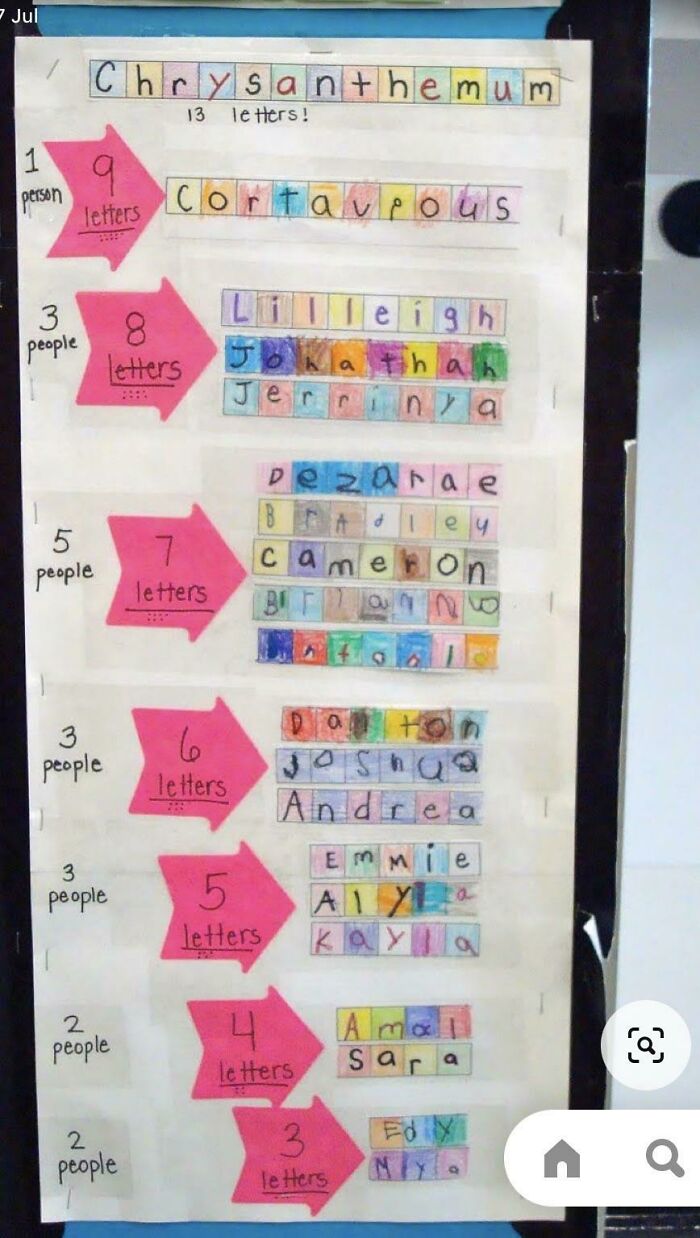 7 Jul
Chrysanthemum
13 letters!
1 person
9 letters
Cortaveous
3 people
8 letters
Lilleigh
Jonathan
Jerrinya
5 people
7 letters
Dezarae
BrAdley
cameron
Brianna
Antonio
3 people
6 letters
Danton
Joshua
Andrea
3 people
5 letters
Emmie
Kayla
2 people
4 letters
Amal
Sara
2 people
3 letters
Edy
Mya